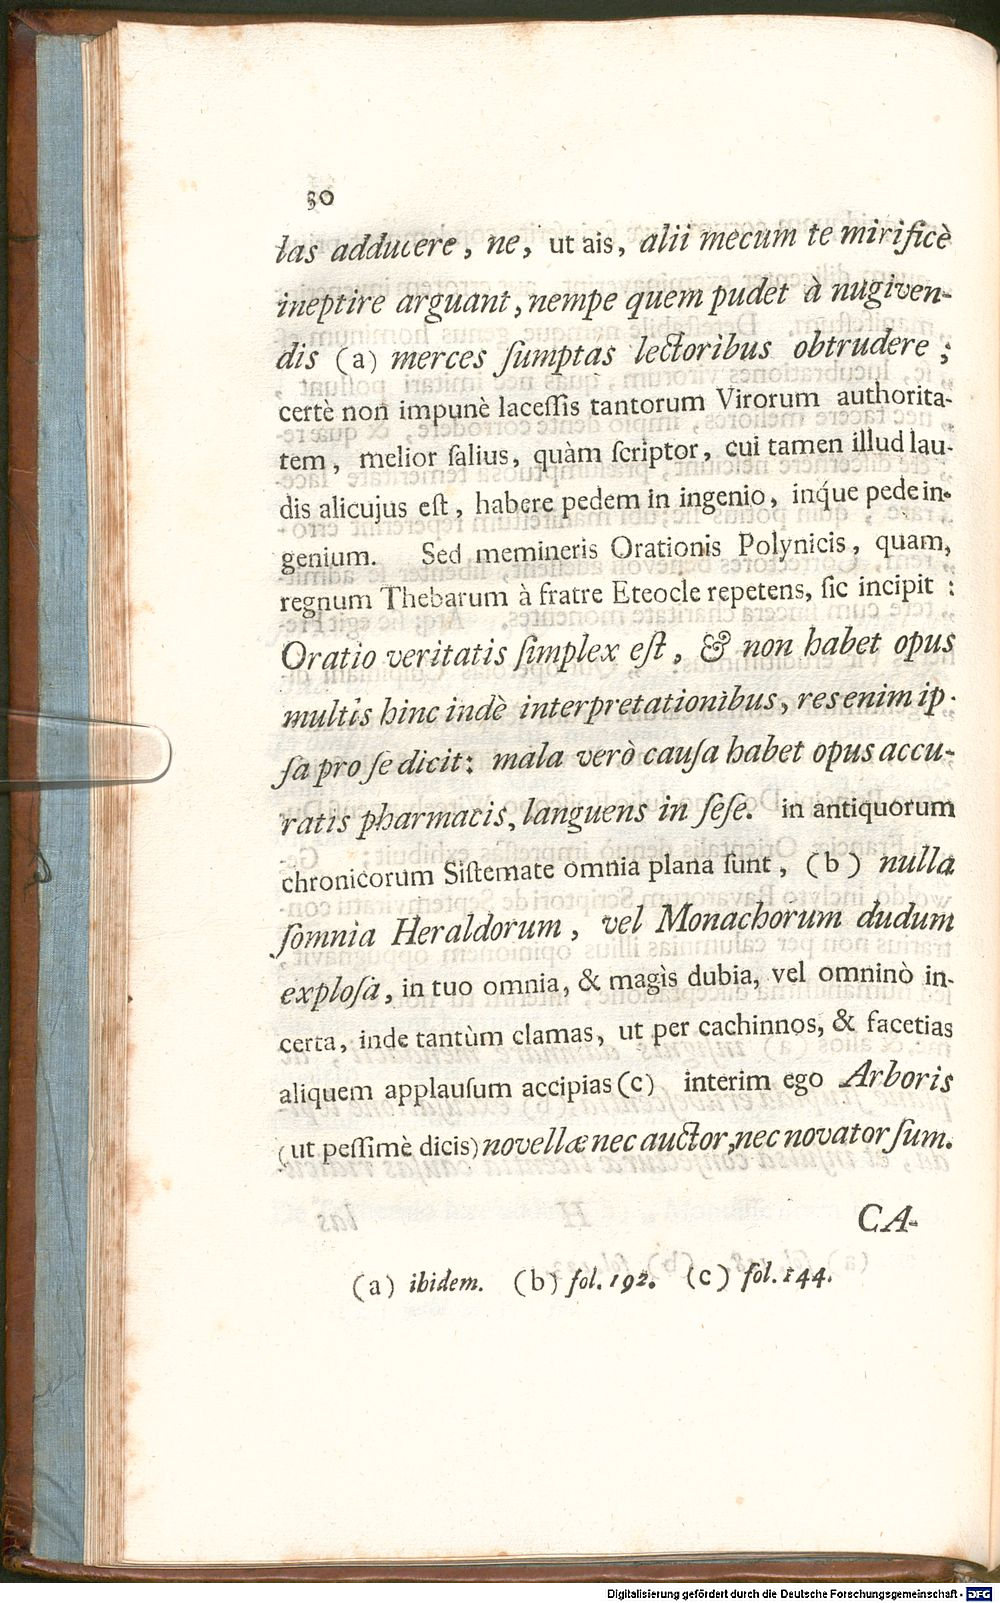 30
las adducere, ne, ut ais, alii mecum te mirificè
ineptire arguant, nempe quem pudet à nugiven-
dis (a) merces ſumptas lectoribus obtrudere;
certè non impunè laceſſis tantorum Virorum authorita-
tem, melior ſalius, quàm ſcriptor, cui tamen illud lau-
dis alicujus eſt, habere pedem in ingenio, inq́ue pede in-
genium. Sed memineris Orationis Polynicis, quam,
regnum Thebarum à fratre Eteocle repetens, ſic incipit:
Oratio veritatis ſimplex eſt, & non habet opus
multis hinc indè interpretationibus, res enim ip-
ſa pro ſe dicit: mala verò cauſa habet opus accu-
ratis pharmacis, languens in ſeſe. in antiquorum
chronicorum Siſtemate omnia plana ſunt, (b) nulla
ſomnia Heraldorum, vel Monachorum dudum
exploſa, in tuo omnia, & magìs dubia, vel omninò in-
certa, inde tantùm clamas, ut per cachinnos, & facetias
aliquem applauſum accipias (c) interim ego Arboris
(ut peſſimè dicis) novellæ nec auctor, nec novator ſum.
CA-
(a) ibidem. (b) fol. 192. (c) fol. 144.
Digitalisierung gefördert durch die Deutsche Forschungsgemeinschaft - DFG